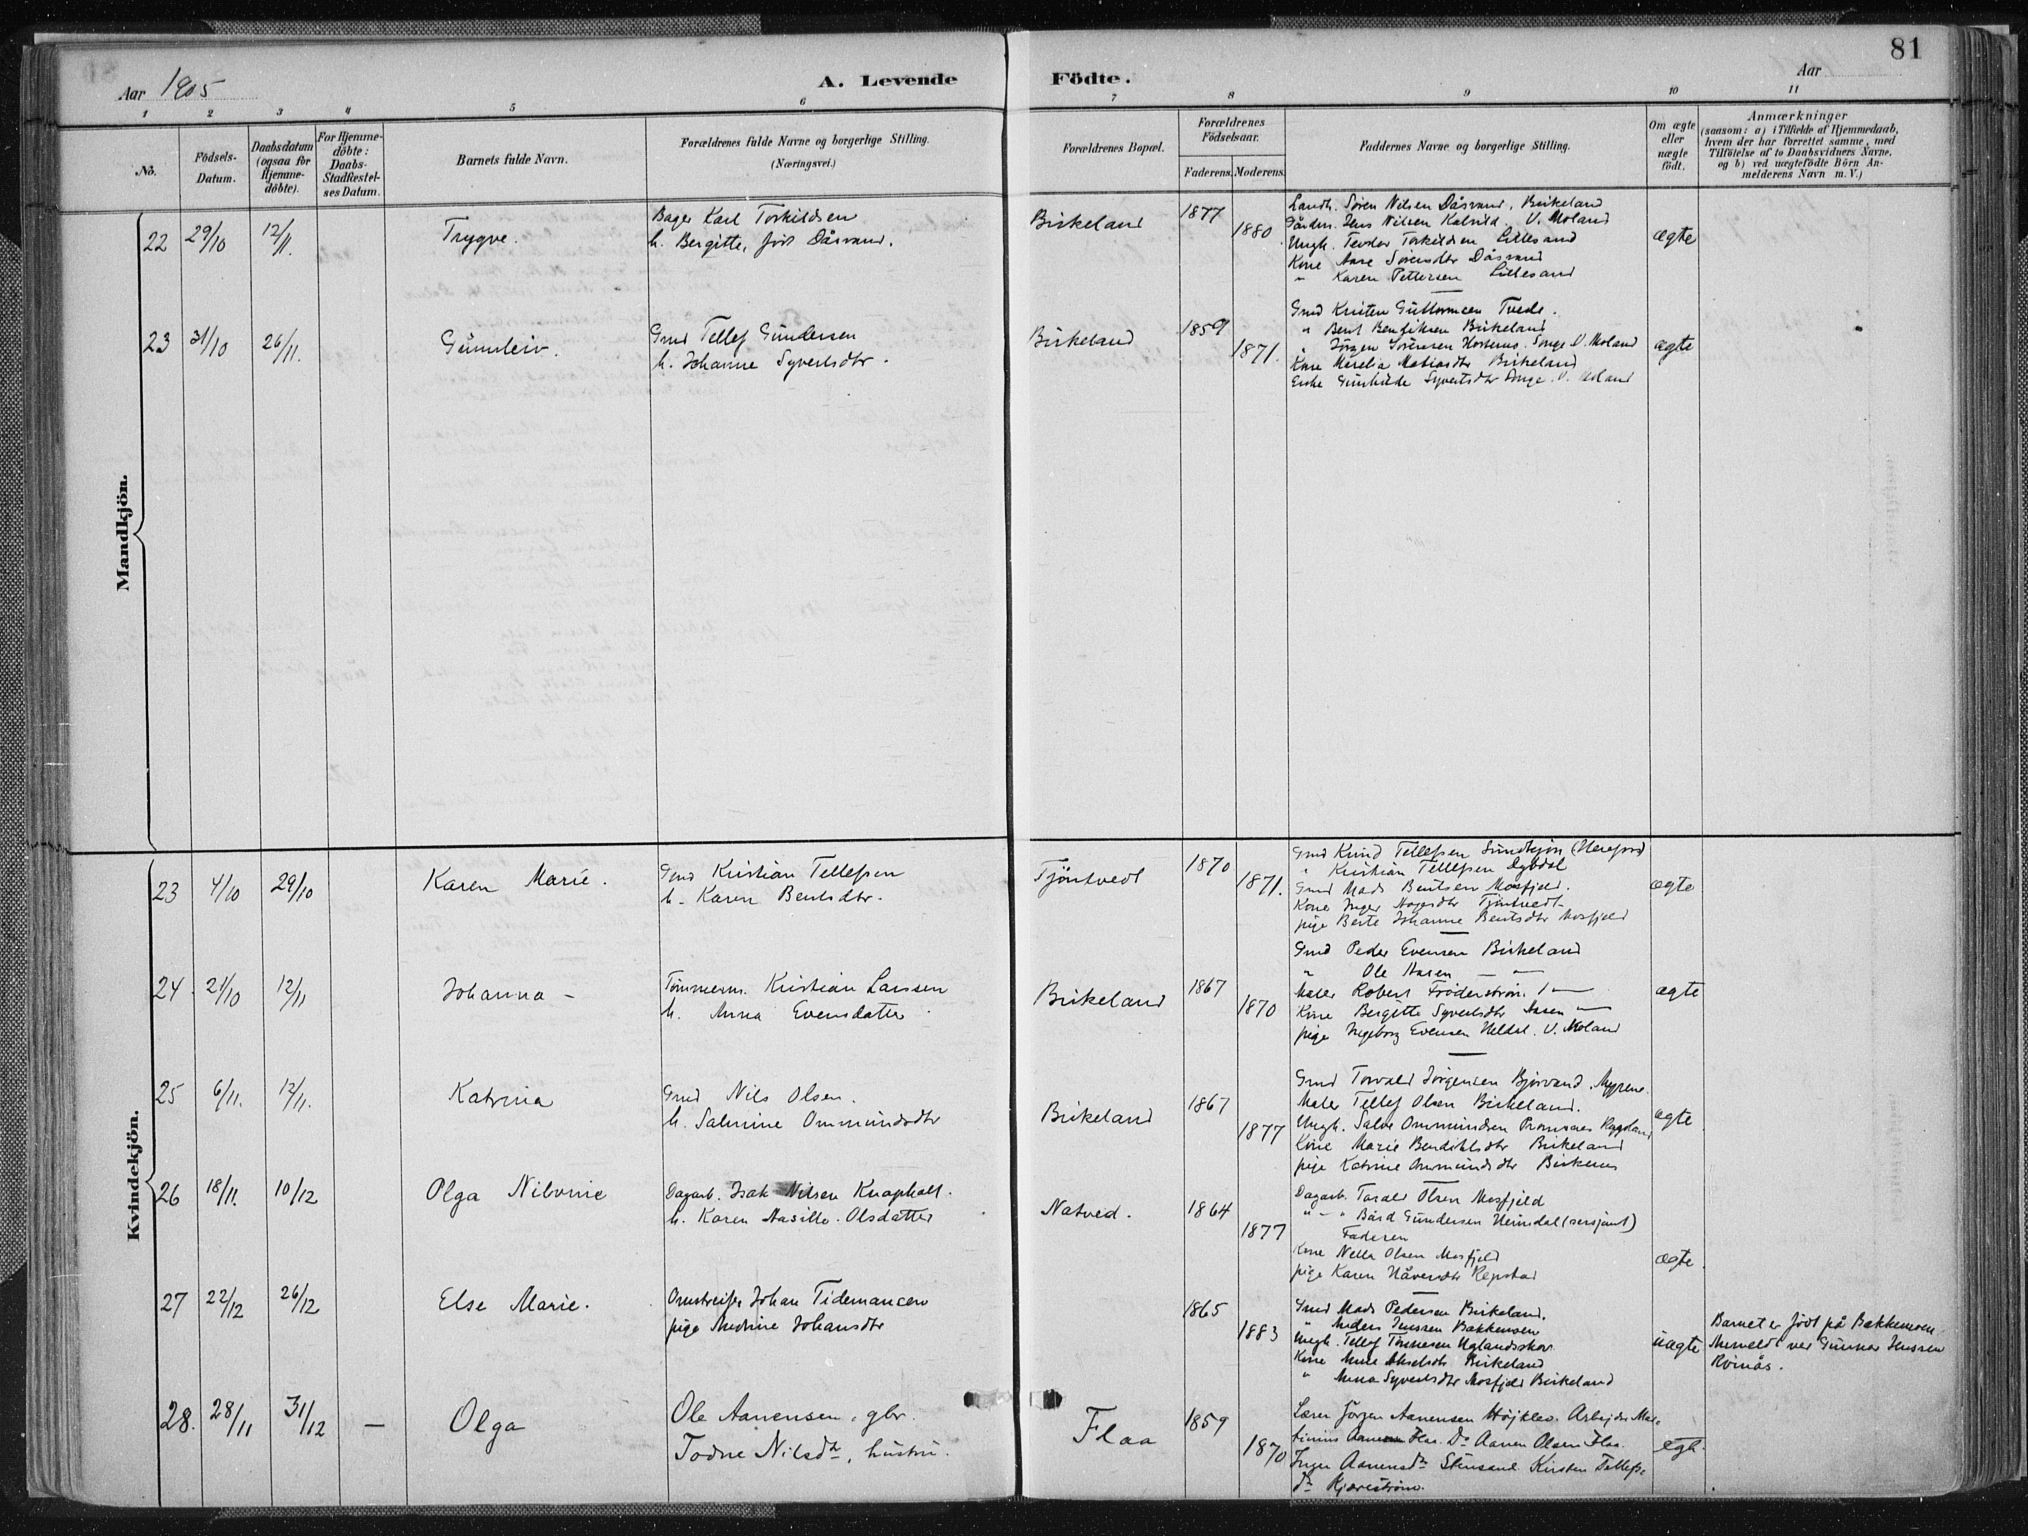 81
Aar 1905
A. Levende Födte.
Aar
1 2 3 4 5 6 7 8 9 10 11
No.
Födsels-Datum.
Daabsdatum (ogsaa for Hjemme-döbte).
For Hjemme-döbte: Daabs-Stadfæstel-ses Datum.
Barnets fulde Navn.
Forældrenes fulde Navne og borgerlige Stilling.
(Næringsvei.)
Forældrenes Bopæl.
Forældrenes Födselsaar.
Faderens. Moderens.
Faddernes Navne og borgerlige Stilling.
Om ægte eller uægte födt.
Anmærkninger
(saasom: a) i Tilfælde af Hjemmedaab,
hvem der har forrettet samme, med
Tilföielse af to Daabsvidners Navne,
og b) ved uægtefödte Börn An-
melderens Navn m. V.)
Mandkjön.
22 29/10 12/11. Trygve.
Bager Karl Torkildsen
h. Bergitte, født Dåsvand.
Birkeland 1877 1880.
Landh. Søren Nilsen Dåsvand, Birkeland
Gårdm. Jens Nilsen Kalvild V. Moland
Ungk. Teodor Torkildsen Lillesand
Kone Aase Sørensdtr Dåsvand
" Karen Pettersen Lillesand
ægte
23 31/10 26/11. Gunnleiv.
Gmd Tellef Gundersen
h. Johanne Syvertsdtr.
Birkeland 1859 1871.
Gmd Kristen Guttormsen Tvede.
" Bent Bendiksen Birkeland
" Jørgen Sørensen Songe V. Moland
Kone Matiasdtr Birkeland
Enke Gunhilde Syvertsdtr Songe V. Moland
ægte
Kvindekjön.
23 4/10 29/10 Karen Marie.
Gmd Kristian Tellefsen
h. Karen Bentsdtr.
Tjöntvedt 1870 1871.
Gmd Knud Tellefsen (Herefoss)
" Kristian Tellefsen Dybdal
Gmd Mads Bentsen Mosfjeld.
Kone Inger Tjöntvedt
pige Berte Johanne Bentsdtr Mosfjeld
ægte
24. 21/10 12/11 Johanna -
Tømmerm. Kristian Larssen
h. Anna Evensdatter.
Birkeland 1867 1870
Gmd Peder Evensen Birkeland
" Ole Aasen — —
Maler Robert Fröderström —
Kone Bergitte Syvertsdtr Aasen —
pige Ingeborg Evensen Heldal. V. Moland
ægte
25 6/11. 12/11. Katrina
Gmd Nils Olsen.
h. Salmine Ommundsdtr
Birkeland 1867 1877
Gmd Torvald Jørgensen Bjørvand. Myrene.
Maler Tellef Olsen Birkeland.
Ungk. Salve Ommundsen
Kone Marie Bendiksdtr Birkeland
pige Katrine Ommundsdtr Birkenes
ægte
26 18/11. 10/12 Olga Nilovine
Dagarb. Isak Nilsen Knaphalt.
h. Karen Aasille Olsdatter
Natved. 1864 1877
Dagarb. Tarald Olsen Mosfjeld
" - " Bård Gundersen Heimdal (sersjant)
Faderen
Kone Nella Olsen Mosfjeld
pige Karen Håversdtr Repstad
ægte
27 22/12 26/12 Else Marie.
Omstreifer Johan Tidemansen
pige Andrine Johansdtr
1865 1883
Gmd Mads Pedersen Birkeland.
" Anders Jenssen Bakkemoen
Ungk. Tellef Tønnesen Uglandsskov
Kone Anne Birkeland
" Anna Syvertsdtr Mosfjeld Birkeland
uægte
Barnet er født på Bakkemoen.
Anmeldt ved Gunnar Jenssen
Rönås.
28. 28/11 31/12 — Olga
Ole Aanensen, gbr.
Todne Nilsdtr, hustru.
Flaa 1859 1870
Lærer Jörgen Aanensen Höjklev. Arbejder Mar-
tinius Flaa. Do Aanen Olsen Flaa.
Inger Aanensdtr Stensand. Kirsten Tellefs-
dtr Kjærström.
egte.